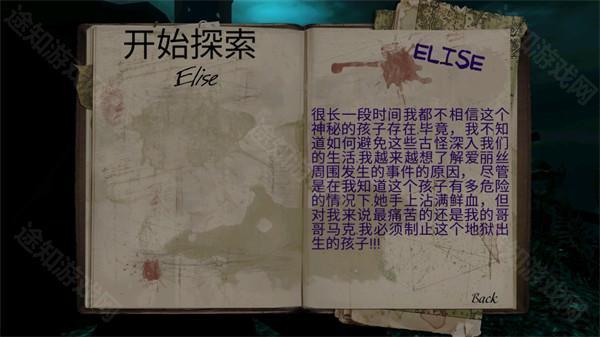 开始探索
Elise
ELISE
很长一段时间我都不相信这个
神秘的孩子存在.毕竟，我不知
道如何避免这些古怪深入我们
的生活.我越来越想了解爱丽丝
周围发生的事件的原因，尽管
是在我知道这个孩子有多危险
的情况下.她手上沾满鲜血，但
对我来说最痛苦的还是我的哥
哥马克.我必须制止这个地狱出
生的孩子!!!
Back
途知游戏网
途知游戏网
途知游戏网
途知游戏网